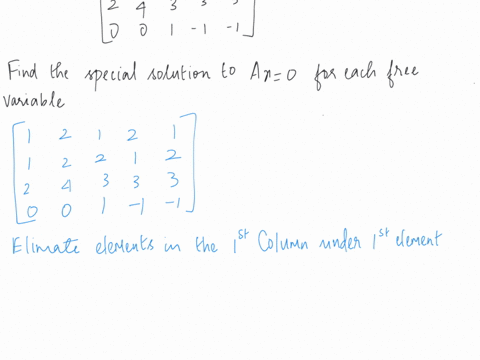 2 4 3 3 3
0 0 1 -1 -1
Find the special solution to Ax=0 for each free
variable
1 2 1 2 1
1 2 2 1 2
2 4 3 3 3
0 0 1 -1 -1
Elimate elements in the 1st Column under 1st element